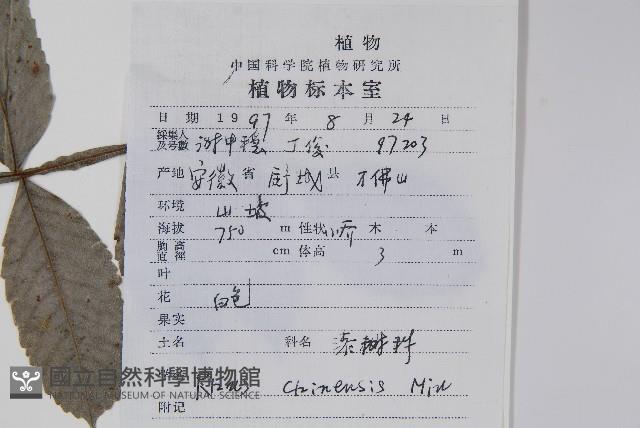 植物
中国科学院植物研究所
植物标本室
日期 1997 年 8 月 24 日
採集人及号數 谢中稳 丁俊 97203
产地 安徽 省 舒城 县 万佛山
环境 山坡
海拔 750 m 性状 小乔木 本
胸高直裡 cm 体高 3 m
叶
花 白色
果实
土名 科名 漆樹科
Rhus chinensis Mill
國立自然科學博物館
NATIONAL MUSEUM OF NATURAL SCIENCE
附记